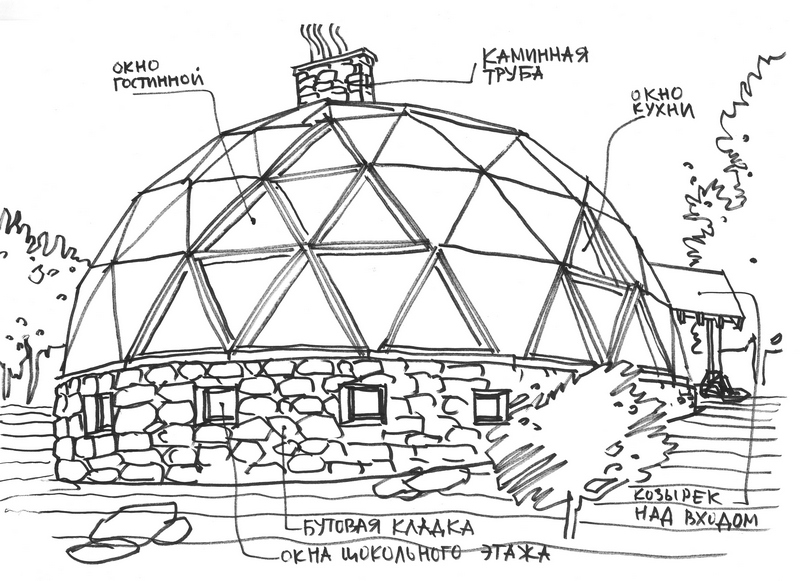 ОКНО
ГОСТИННОЙ
КАМИННАЯ
ТРУБА
ОКНО
КУХНИ
КОЗЫРЕК
НАД ВХОДОМ
БУТОВАЯ КЛАДКА
ОКНА ЦОКОЛЬНОГО ЭТАЖА